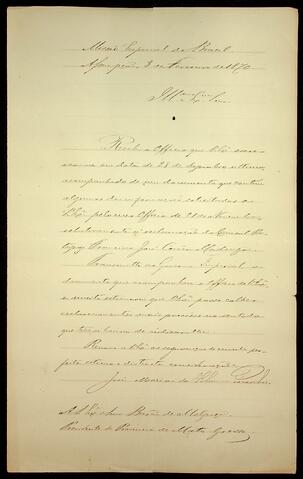 Missão Imperial do Brasil
Assumpção 3 de Fevereiro de 1870
Illmo e Exmo Snr
Recebi o Officio que V.Exa
em data de 28 de Dezembro ultimo,
acompanhado de um documento que contem
algumas das informações solicitadas a
V.Exa pelo meu Officio de 21 de Novembro,
relativamente á reclamação do Consul
Francisco José Corrêa Madruga.
Transmitto ao Governo Imperial o
documento que acompanhou o Officio de V.Exa,
e muito estimarei que V.Exa possa colher
esclarecimentos mais precisos no sentido
que tive a honra de
Renovo a V.Exa as seguranças de minha per-
feita estima e distincta consideração
José Maria da Silva Paranhos
A S. Exa o Snr Barão de Melgaço
Presidente da Provincia de Mato Grosso